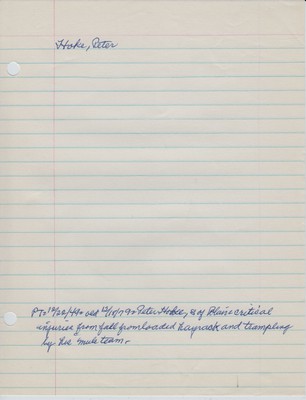 Hoke, Peter
Peter Hoke, of Blaine critical
injuries from fall from loaded hayrack and trampling
by his mule team.